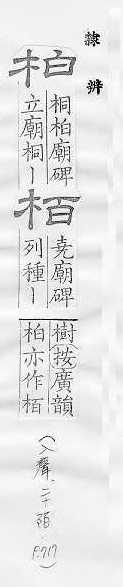 隸辨
柏
桐柏廟碑
立廟桐丨
栢
尭廟碑
列種丨
樹(按)廣韻
柏亦作栢
(入聲.二十陌.P.717)